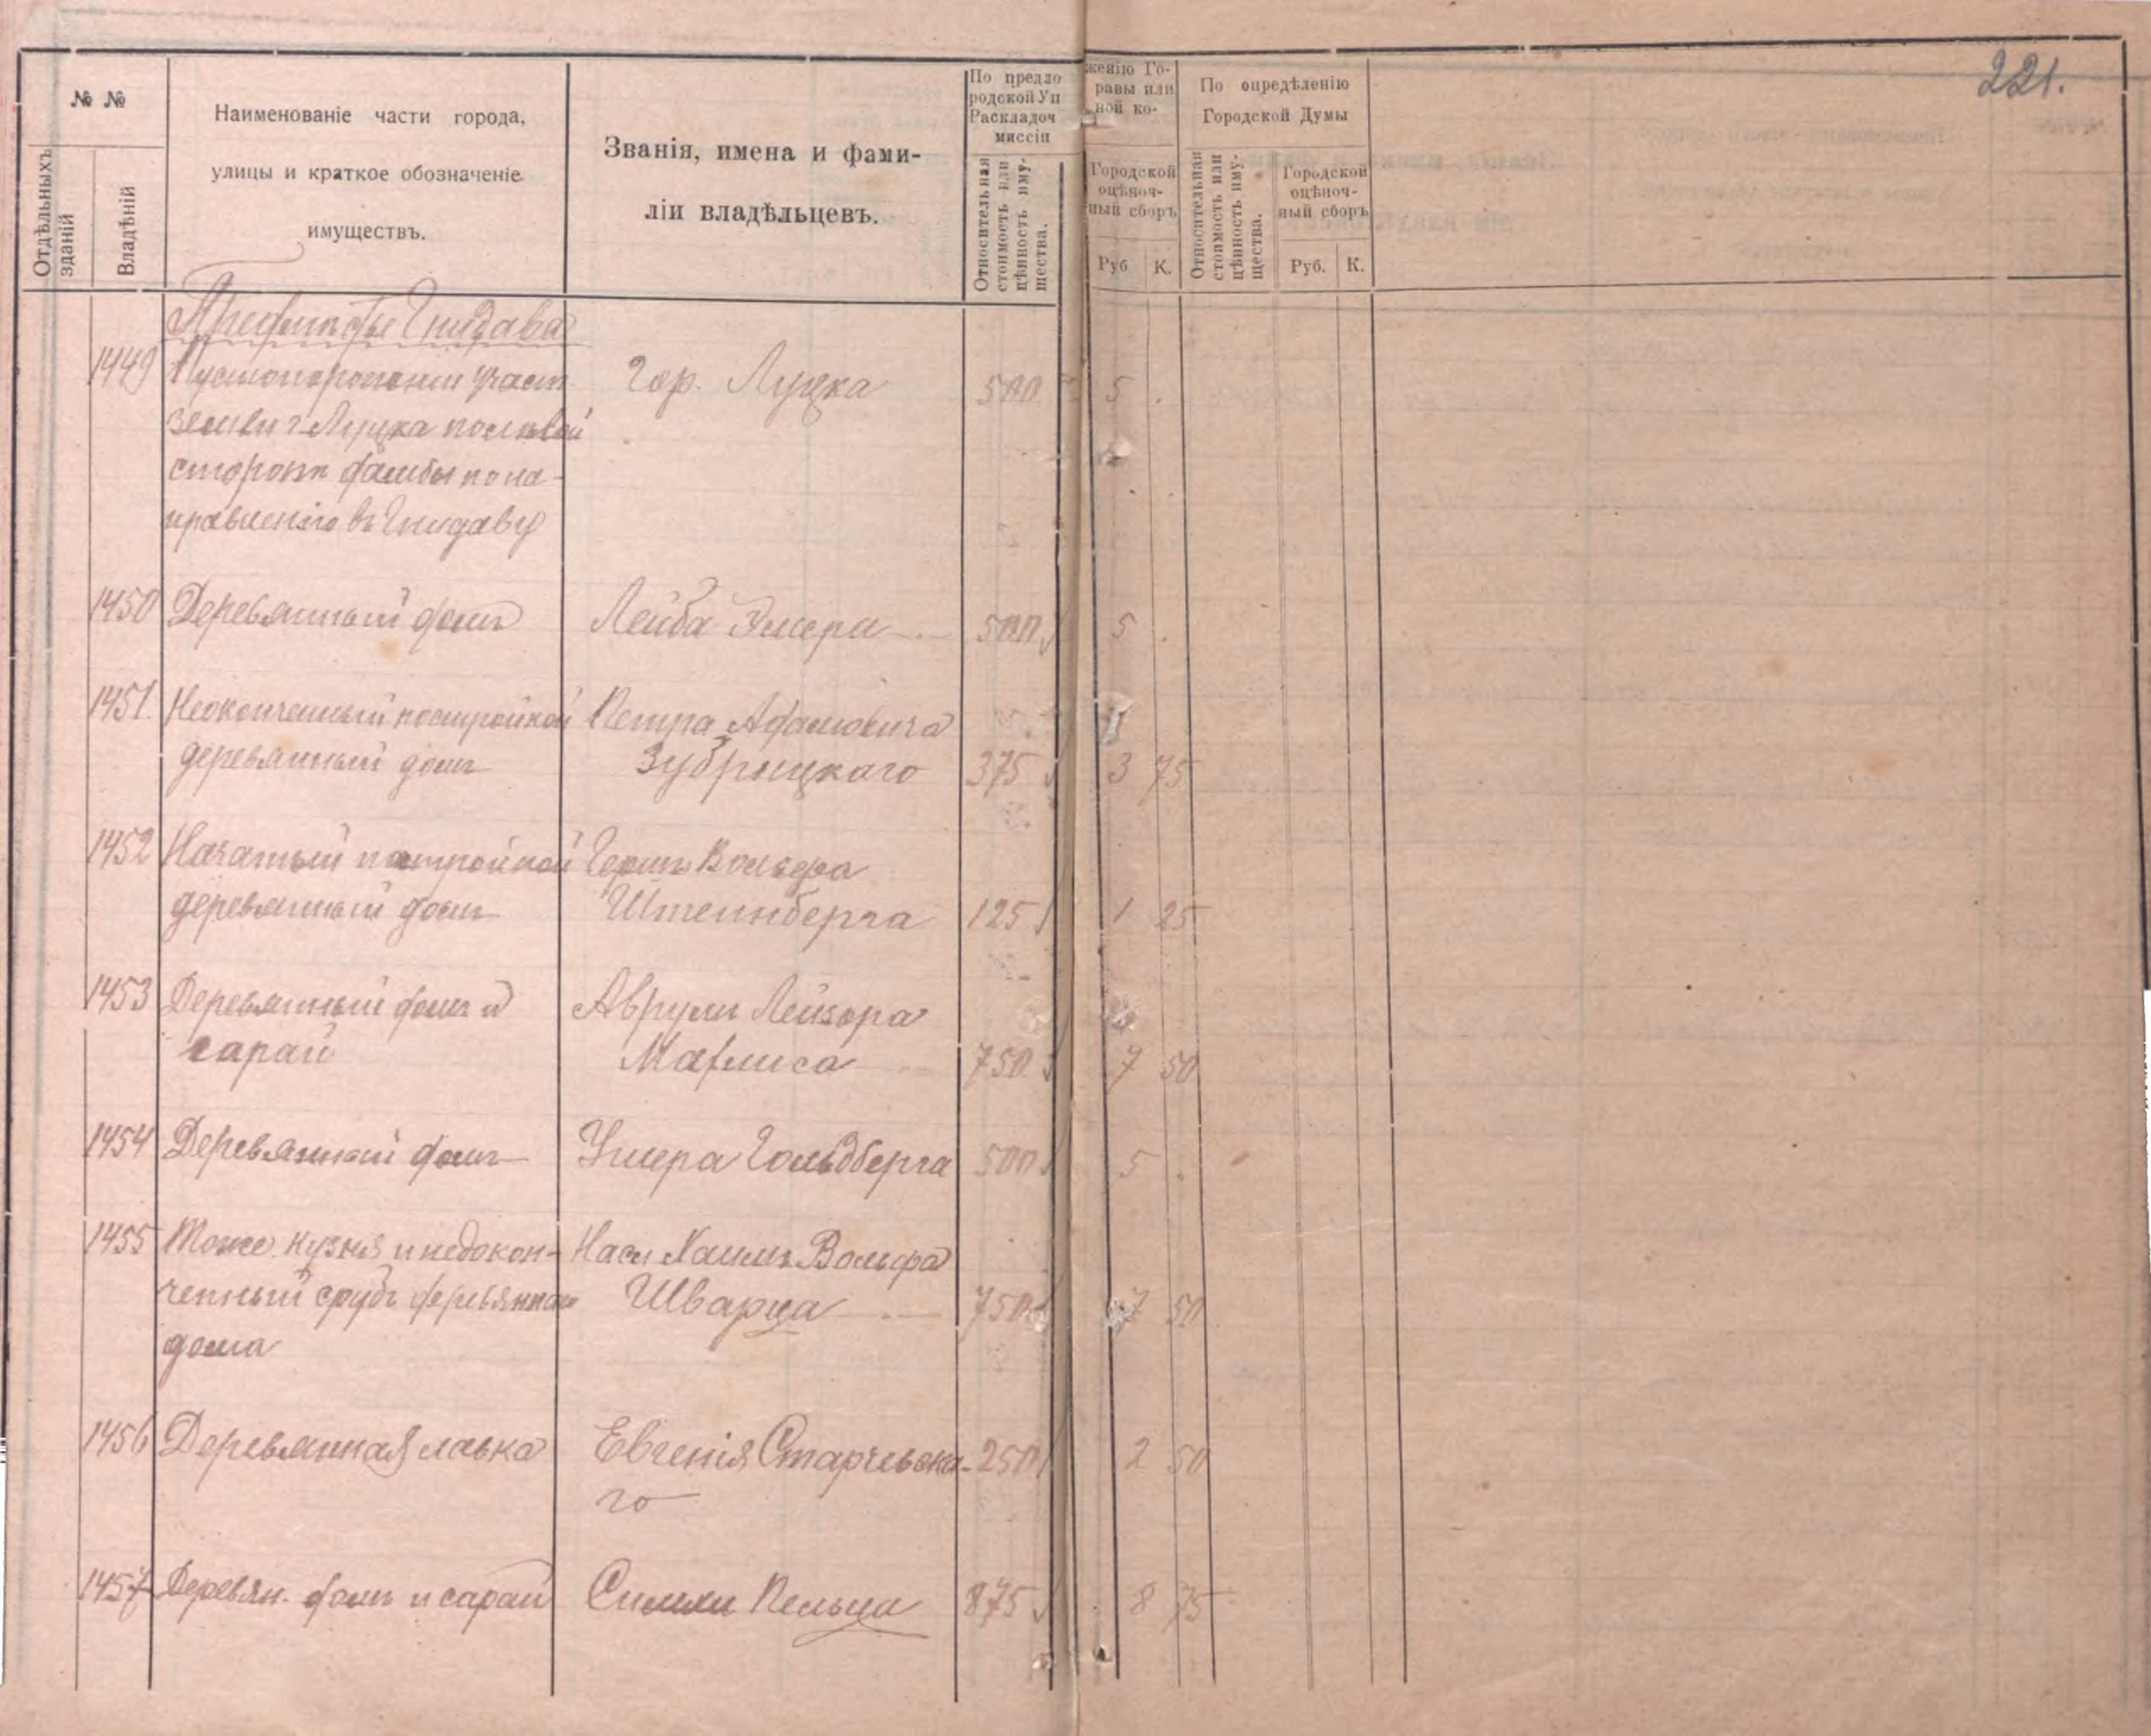 221.
№ №
Отдѣльныхъ зданій
Владѣній
Наименованіе части города,
улицы и краткое обозначеніе
имуществъ.
Званія, имена и фами-
ліи владѣльцевъ.
По предло
женію Го-
родской Уп
равы или
Раскладоч
ной ко-
миссіи
Относительная стоимость или цѣнность иму- щества.
Городской
оцѣноч-
ный сборъ
Руб К.
По опредѣленію
Городской Думы
Относительная стоимость или цѣнность иму- щества.
Городской
оцѣноч-
ный сборъ
Руб. К.
Предмѣстье Гнидава
1449 Пустопорожній участ. Гор. Луцка 500 5 .
земли г. Луцка по лѣвой
сторонѣ дамбы по на-
правленію въ Гнидаву
1450 Деревянный домъ Лейба Эмера 500 5 .
1451. Неоконченный постройкой Петра Адамовича
деревянный домъ Зубрицкаго 375 3 75
1452 Начатый постройкой Гершъ Вольфа
деревянный домъ Штеинберга 125 1 25
1453 Деревянный домъ и Аврумъ Лейзора
сарай 750 7 50
1454 Деревянный домъ Умера Гольдберга 500 5 .
1455 Тоже кузня и недокон- Хаимъ Вольфа
ченный срубъ деревянная Шварца 750 7 50
дома
1456 Деревянная лавка Евгенія Старчевска- 250 2 50
го
1457 Деревян. домъ и сарай Симхи Пельца 875 8 75